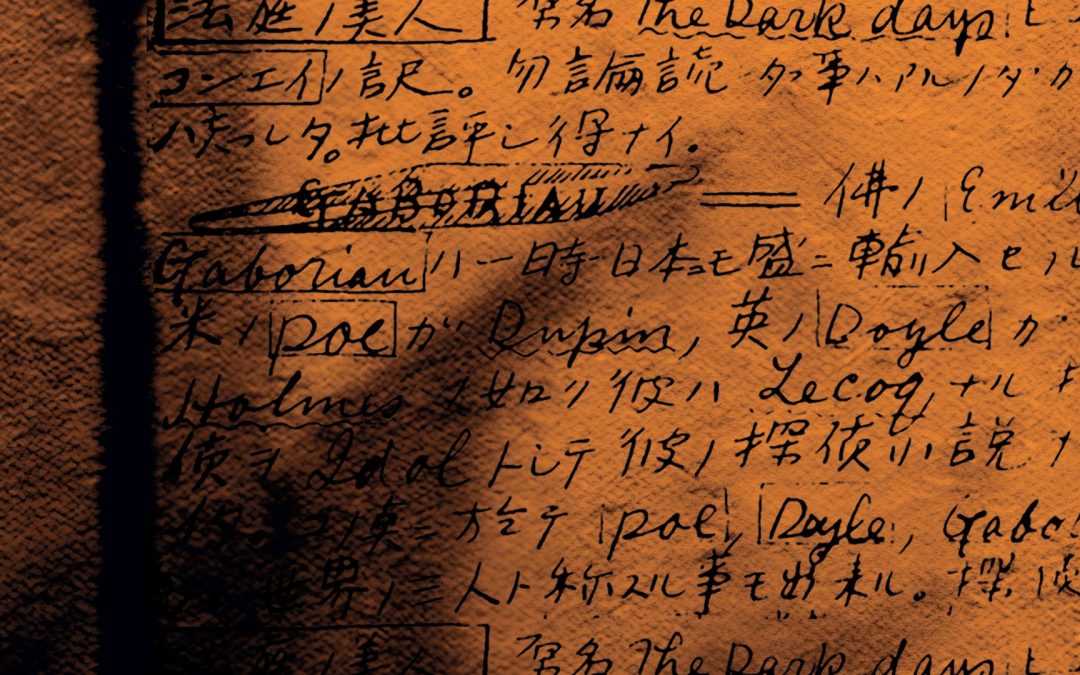 法庭ノ美人 原名 The Dark days ト
コンエイノ訳。勿論翻読タ事ハアルノダガ
ハ忘ㇾタ。批評シ得ナイ。
GABORIAU = 佛ノ Emil
Gaboriauハ一時日本ニモ盛ニ輸入セル
米ノ Poe ガ Dupin, 英ノ Doyle ガ
Holmes ノ如ク彼ハ Lecoq, ナル
偵ヲ Idol トシテ彼ノ探偵小説
ニ於テ Poe, Doyle, Gabo
世界ノ三人ト称スル事モ出来ル。探偵
法庭ノ美人 原名 The Dark days ト